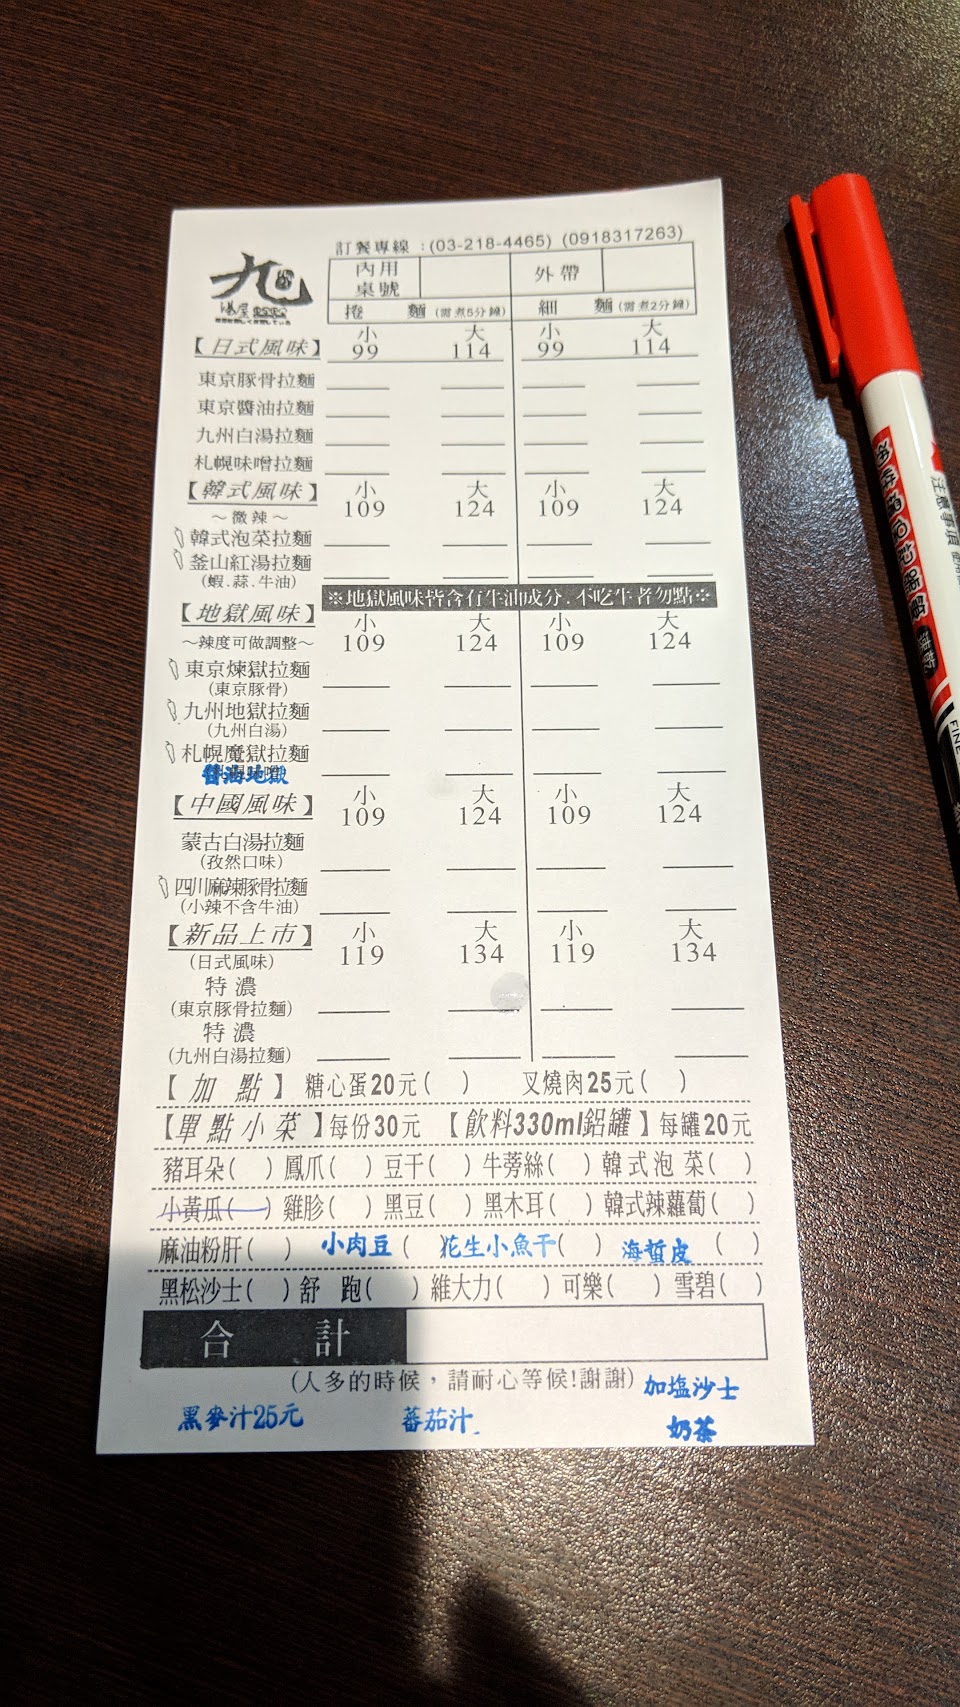 九
湯屋
訂餐專線：(03-218-4465) (0918317263)
內用桌號 外帶
捲麵(需煮5分鐘) 細麵(需煮2分鐘)
【日式風味】 小99 大114 小99 大114
東京豚骨拉麵
東京醬油拉麵
九州白湯拉麵
札幌味噌拉麵
【韓式風味】 小109 大124 小109 大124
～微辣～
韓式泡菜拉麵
釜山紅湯拉麵
(蝦.蒜.牛油)
※地獄風味皆含有牛油成分.不吃牛者勿點※
【地獄風味】 小109 大124 小109 大124
～辣度可做調整～
東京煉獄拉麵
(東京豚骨)
九州地獄拉麵
(九州白湯)
札幌魔獄拉麵
醬油地獄
【中國風味】 小109 大124 小109 大124
蒙古白湯拉麵
(孜然口味)
四川麻辣豚骨拉麵
(小辣不含牛油)
【新品上市】 小119 大134 小119 大134
(日式風味)
特濃
(東京豚骨拉麵)
特濃
(九州白湯拉麵)
【加點】 糖心蛋20元( ) 叉燒肉25元( )
【單點小菜】每份30元 【飲料330ml鋁罐】每罐20元
豬耳朵( ) 鳳爪( ) 豆干( ) 牛蒡絲( ) 韓式泡菜( )
小黃瓜( ) 雞胗( ) 黑豆( ) 黑木耳( ) 韓式辣蘿蔔( )
麻油粉肝( ) 小肉豆( 花生小魚干( ) 海蜇皮( )
黑松沙士( ) 舒跑( ) 維大力( ) 可樂( ) 雪碧( )
合計
(人多的時候，請耐心等候!謝謝) 加塩沙士
黑麥汁25元 蕃茄汁. 奶茶
注意事項
速乾
FINE